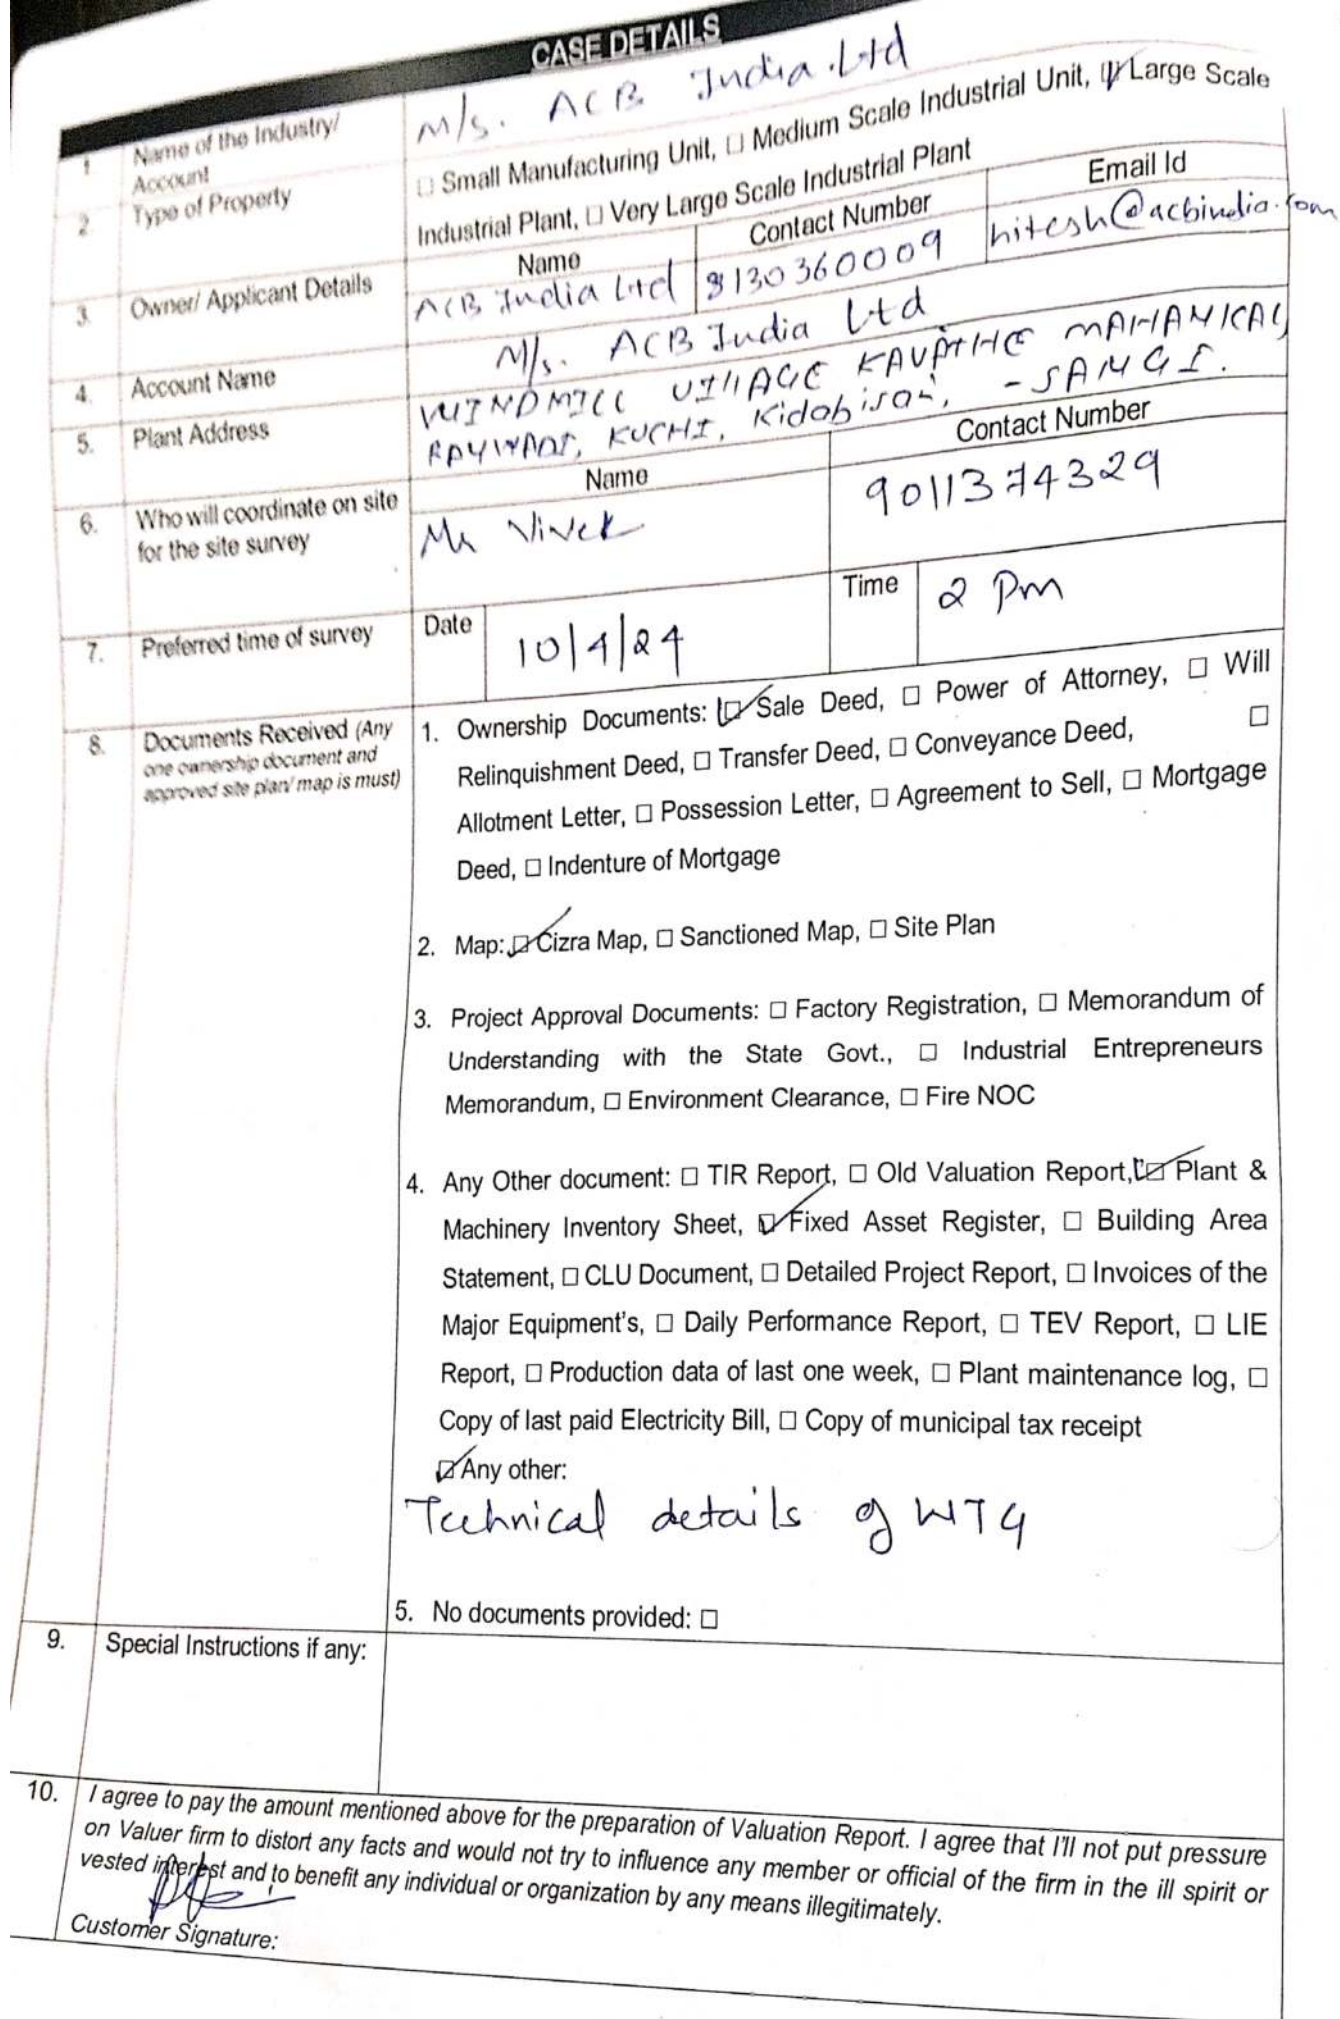 CASE DETAILS
1 Name of the Industry/ Account M/s. ACB India Ltd
2 Type of Property ☐ Small Manufacturing Unit, ☐ Medium Scale Industrial Unit, ☑ Large Scale
Industrial Plant, ☐ Very Large Scale Industrial Plant
3. Owner/ Applicant Details
Name Contact Number Email Id
ACB India Ltd 8130360009 hitesh@acbindia.com
4. Account Name M/s. ACB India Ltd
5. Plant Address WINDMILL VILLAGE KAVATHE MAHANKAL
KUCHI, - SANGI.
6. Who will coordinate on site
for the site survey
Name Contact Number
Mr Vivek 9011374329
7. Preferred time of survey Date 10/4/24 Time 2 Pm
8. Documents Received (Any
one ownership document and
approved site plan/ map is must)
1. Ownership Documents: ☑ Sale Deed, ☐ Power of Attorney, ☐ Will ☐
Relinquishment Deed, ☐ Transfer Deed, ☐ Conveyance Deed,
Allotment Letter, ☐ Possession Letter, ☐ Agreement to Sell, ☐ Mortgage
Deed, ☐ Indenture of Mortgage
2. Map: ☑ Cizra Map, ☐ Sanctioned Map, ☐ Site Plan
3. Project Approval Documents: ☐ Factory Registration, ☐ Memorandum of
Understanding with the State Govt., ☐ Industrial Entrepreneurs
Memorandum, ☐ Environment Clearance, ☐ Fire NOC
4. Any Other document: ☐ TIR Report, ☐ Old Valuation Report, ☑ Plant &
Machinery Inventory Sheet, ☑ Fixed Asset Register, ☐ Building Area
Statement, ☐ CLU Document, ☐ Detailed Project Report, ☐ Invoices of the
Major Equipment's, ☐ Daily Performance Report, ☐ TEV Report, ☐ LIE
Report, ☐ Production data of last one week, ☐ Plant maintenance log, ☐
Copy of last paid Electricity Bill, ☐ Copy of municipal tax receipt
☑ Any other:
Technical details of WTG
5. No documents provided: ☐
9. Special Instructions if any:
10. I agree to pay the amount mentioned above for the preparation of Valuation Report. I agree that I'll not put pressure
on Valuer firm to distort any facts and would not try to influence any member or official of the firm in the ill spirit or
vested interest and to benefit any individual or organization by any means illegitimately.
Customer Signature: